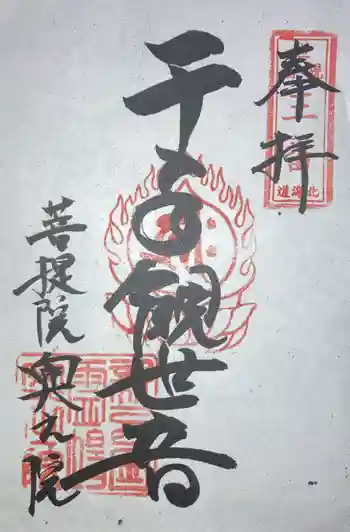 奉拝
北海道
千手観世音
菩提院奥之院